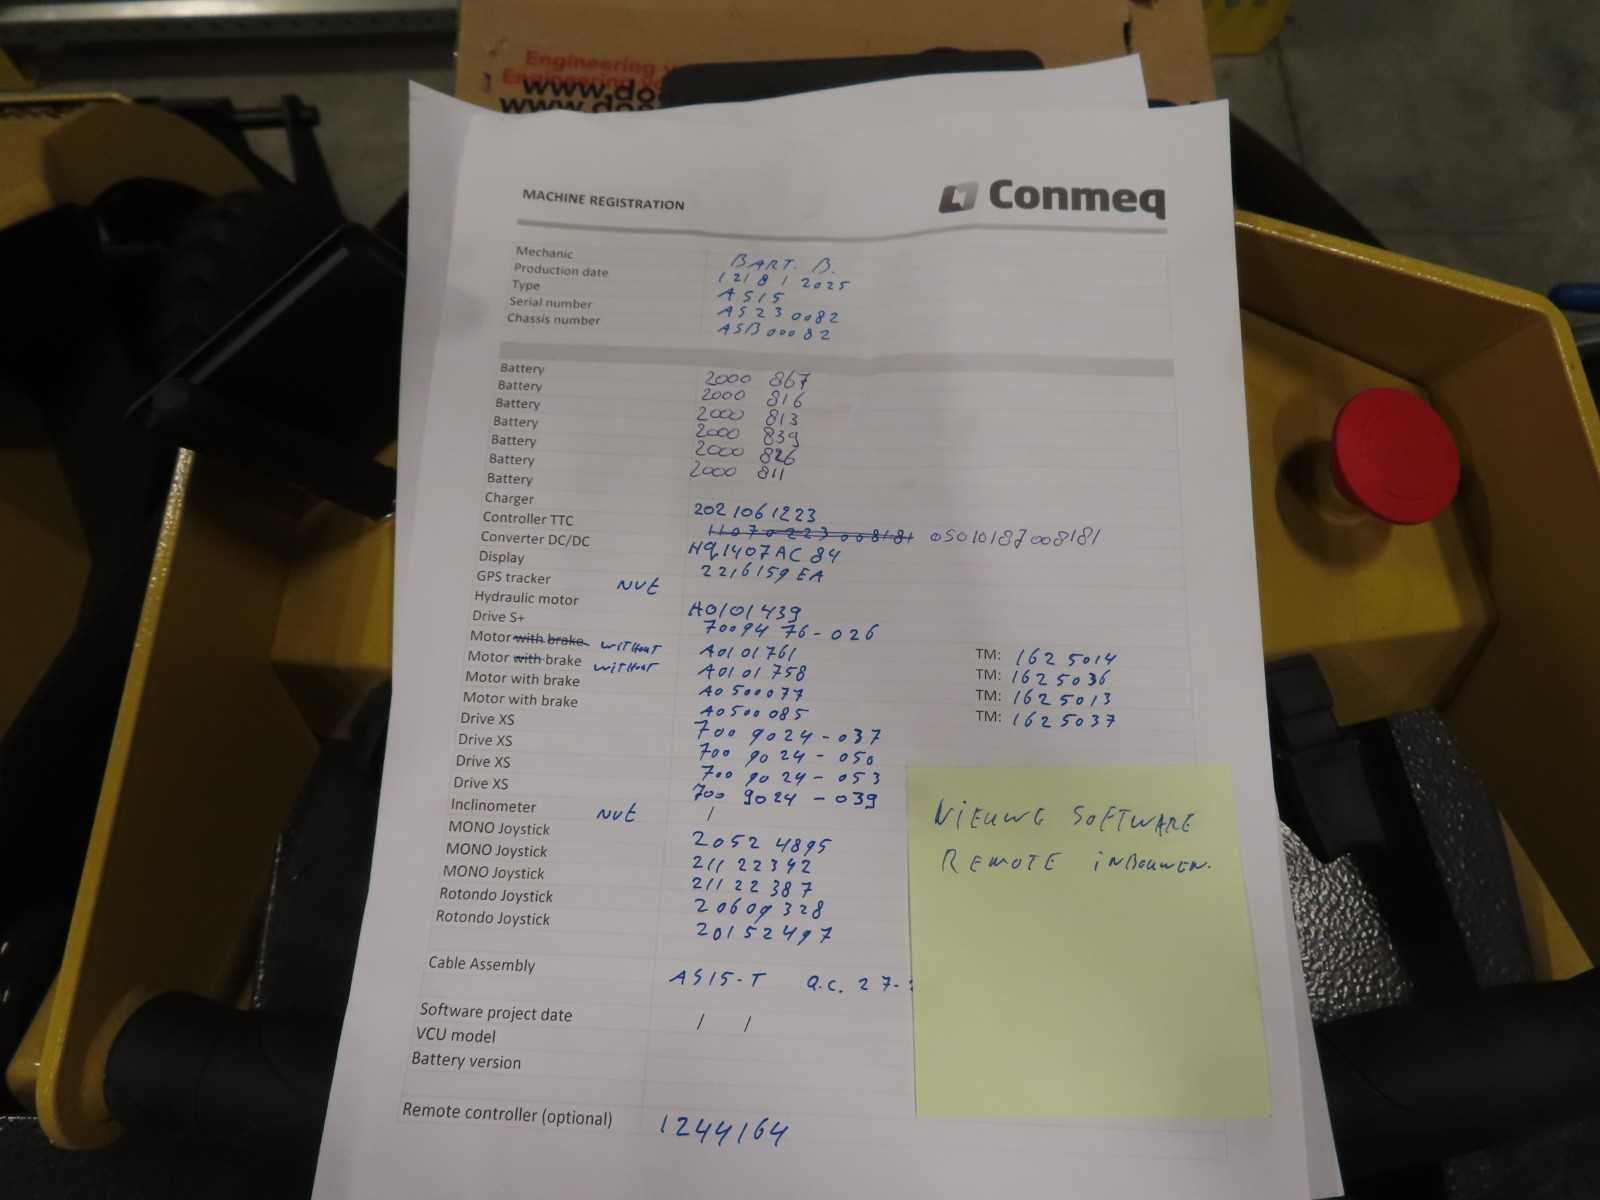 Engineering
Engineering
www.dos
www.doo
MACHINE REGISTRATION
Conmeq
Mechanic BART. B.
Production date 12/8/2025
Type AS15
Serial number AS230082
Chassis number ASB00082
Battery 2000 867
Battery 2000 816
Battery 2000 813
Battery 2000 839
Battery 2000 826
Battery 2000 811
Battery
Charger 2021061223
Controller TTC 11070223 008181 0501018J008181
Converter DC/DC HQ1407AC84
Display 2216159EA
GPS tracker NVT
Hydraulic motor A0101439
Drive S+ 7009476-026
Motor with brake WITHOUT A0101761 TM: 1625014
Motor with brake WITHOUT A0101758 TM: 1625036
Motor with brake A0500077 TM: 1625013
Motor with brake A0500085 TM: 1625037
Drive XS 700 9024-037
Drive XS 700 9024-050
Drive XS 700 9024-053
Drive XS 700 9024-039
Inclinometer NVT /
MONO Joystick 20524895
MONO Joystick 21122392
MONO Joystick 21122387
Rotondo Joystick 20609328
Rotondo Joystick 20152497
Cable Assembly AS15-T Q.C. 27-
Software project date / /
VCU model
Battery version
Remote controller (optional) 1244164
NIEUWE SOFTWARE
REMOTE INBOUWEN.